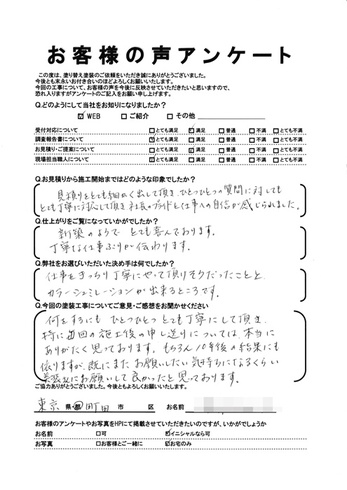 お客様の声アンケート
この度は、塗り替え塗装のご依頼をいただき誠にありがとうございました。
今後とも末永いお付き合いのほどよろしくお願いいたします。
今回の工事について、お客様の声を今後に反映させていただきたいと思いますので、
恐れ入りますがアンケートのご記入をお願い申し上げます。
Q.どのようにして当社をお知りになりましたか?
☑WEB □ご紹介 □その他
受付対応について □とても満足 ☑満足 □普通 □不満 □とても不満
調査報告書について ☑とても満足 □満足 □普通 □不満 □とても不満
お見積り・ご提案について □とても満足 ☑満足 □普通 □不満 □とても不満
現場担当職人について ☑とても満足 □満足 □普通 □不満 □とても不満
Q.お見積りから施工開始まではどのような印象でしたか?
見積りをとても細かく出して頂き ひとつひとつの質問に対しても
とても丁寧に対応して頂き 社長のプライドと仕事への自信が感じられました。
Q.仕上がりをご覧になっていかがでしたか?
新築のようで とても喜んでおります。
丁寧な仕事ぶりが伝わります。
Q.弊社をお選びいただいた決め手は何でしたか?
仕事をきっちり丁寧にやって頂けそうだったことと
カラーシュミレーションが出来るところです。
Q.今回の塗装工事についてご意見・ご感想をお聞かせください
何をするにも ひとつひとつ とても丁寧にして頂き
特に毎回の施工後の申し送りについては、本当に
ありがたく思っております。もちろん10年後の結果にも
依りますが、既にまたお願いしたい気持ちになるくらい
お願いして良かったと思っております。
ご協力ありがとうございました。今後ともよろしくお願いいたします。
東京 県・都 町田 市 区 お名前
お客様のアンケートやお写真をHPにて掲載させていただきたいのですが、いかがでしょうか
お名前 □可 ☑イニシャルなら可
お写真 □お客様とご一緒に ☑お宅のみ